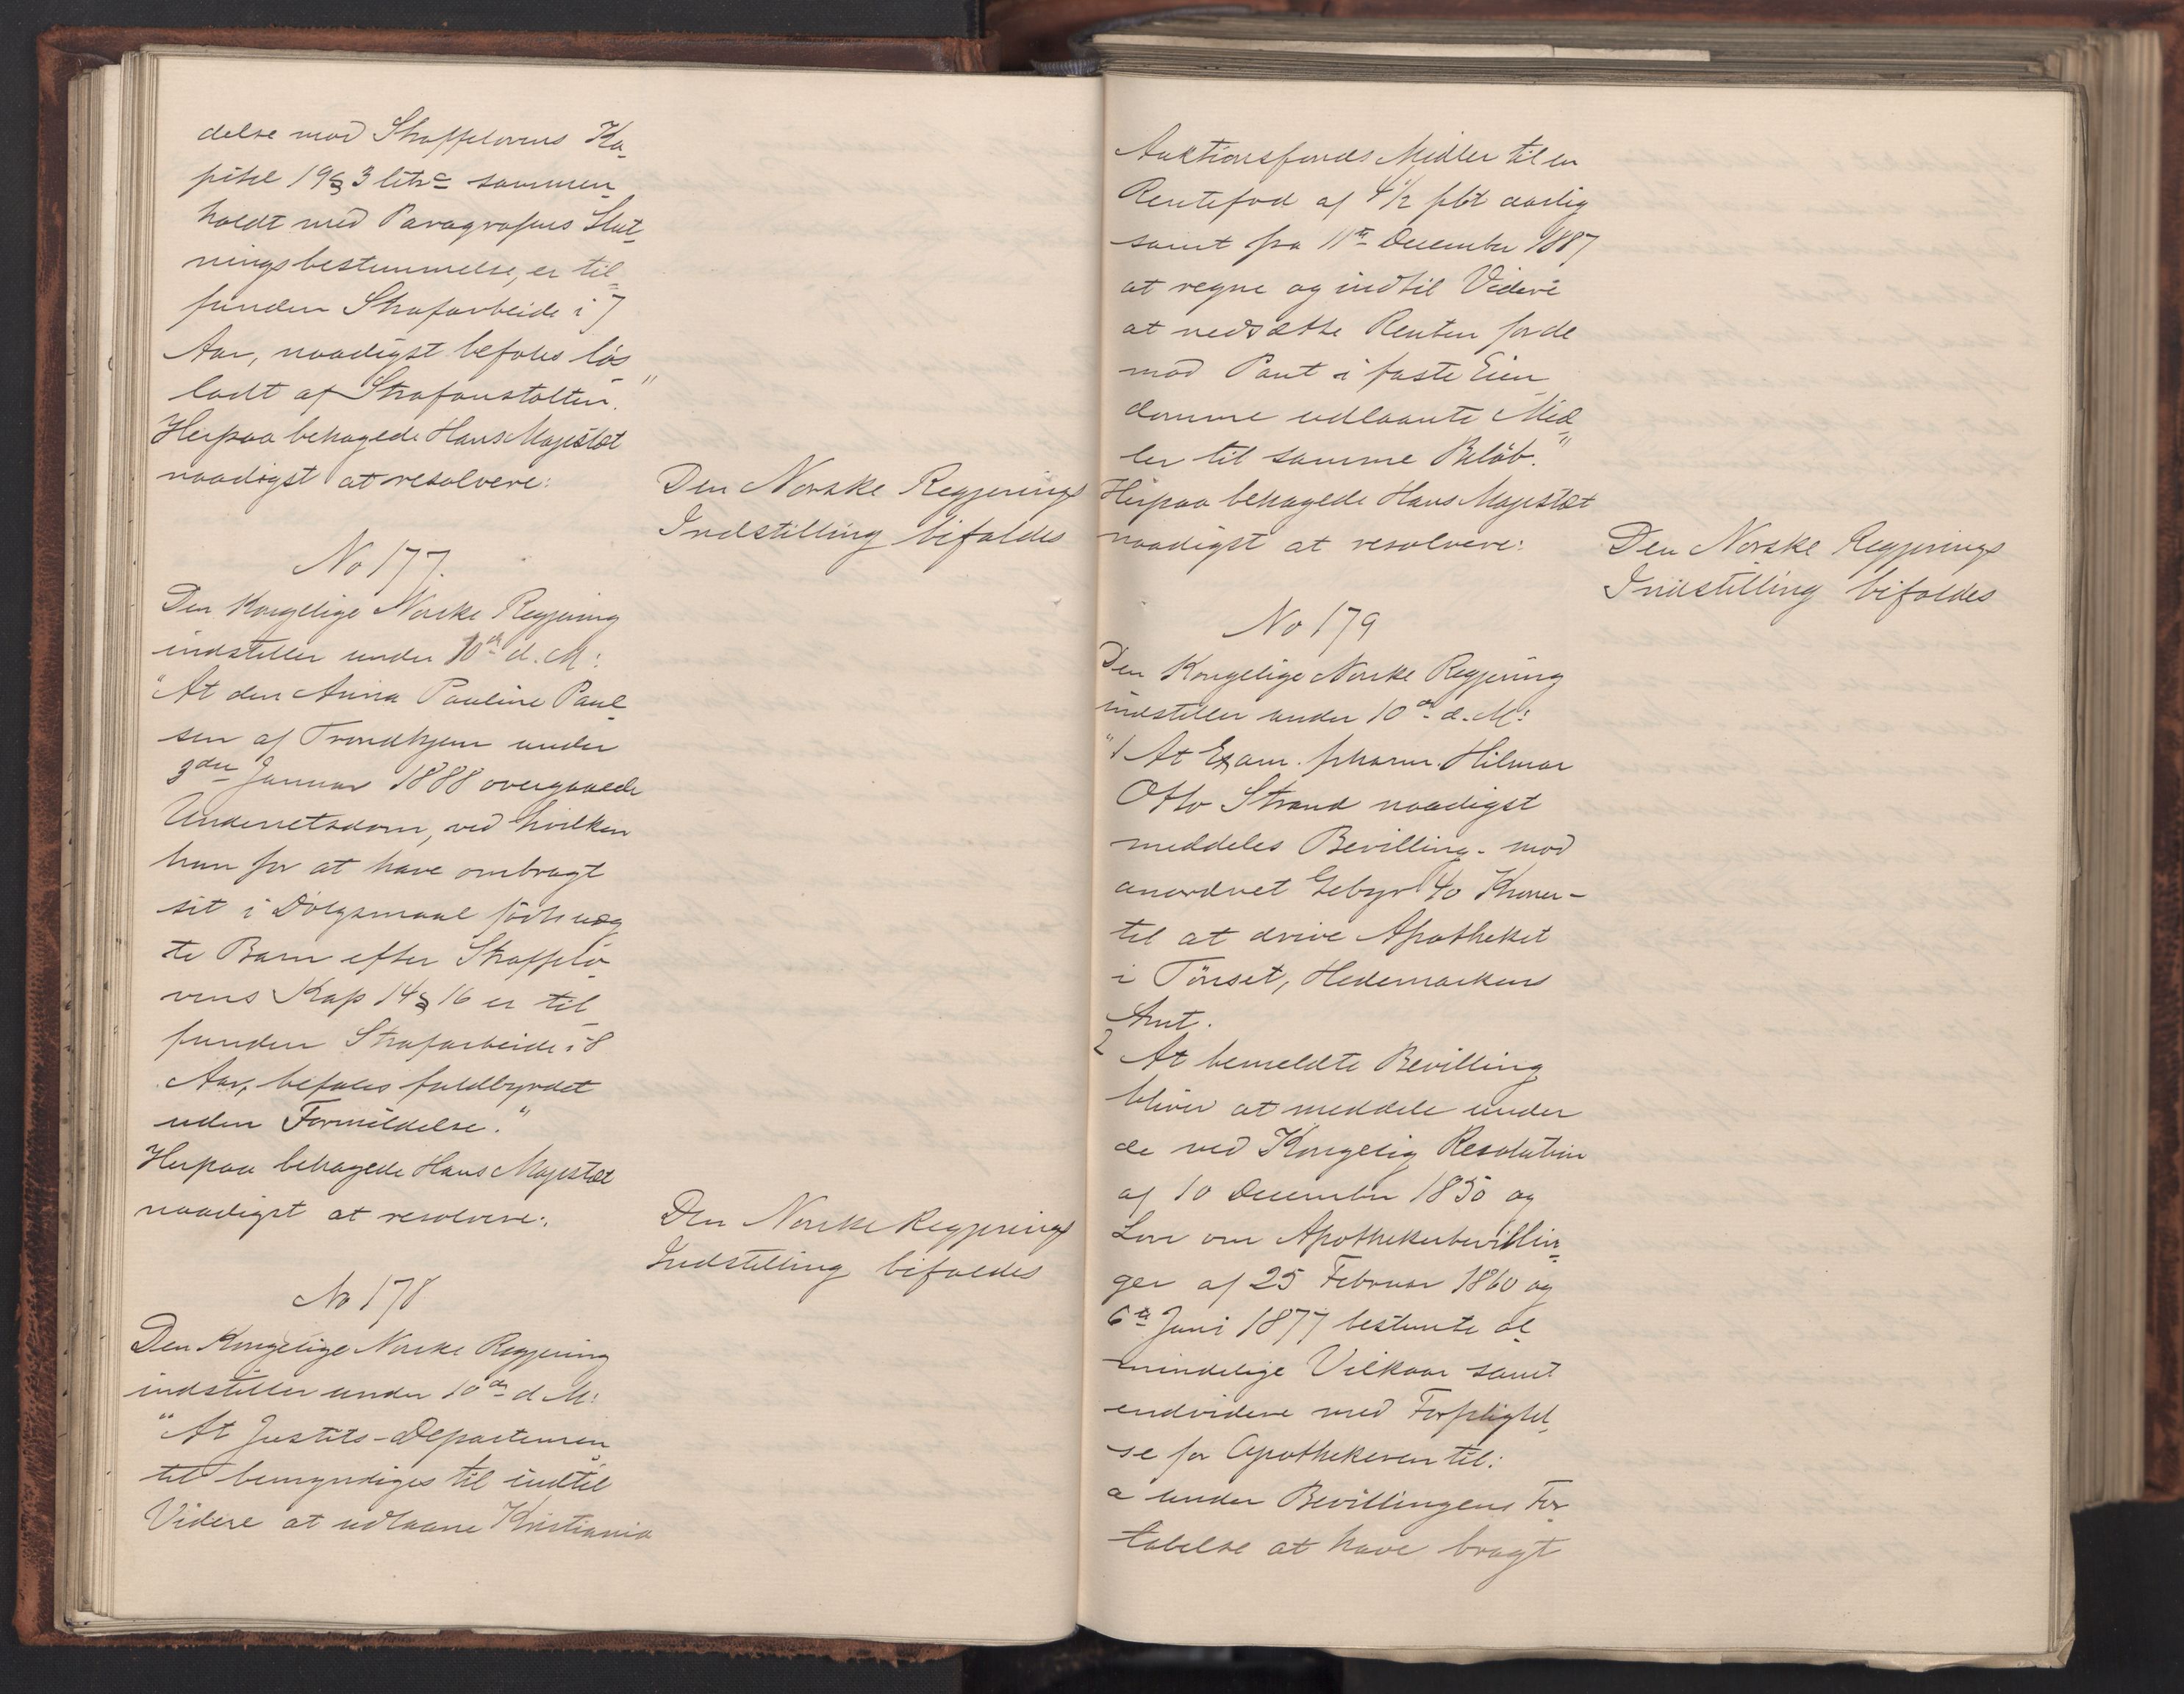 delse mod Straffelovens Ka-
pitel 19 § 3 litr c sammen-
holdt med Paragrafens Slut-
ningsbestemmelse, er til-
funden Strafarbeide i 7
Aar, naadigst befales lös-
ladt af Strafanstalten."
Herpaa behagede Hans Majestæt
naadigst at resolvere:
Den Norske Regjerings
Indstilling bifaldes
No 177.
Den Kongelige Norske Regjering
indstiller under 10de d. M:
"At den Anna Pauline Paul-
sen af Trondhjem under
3die Januar 1888 overgaaede
Underretsdom, ved hvilken
hun for at have ombragt
sit i Dölgsmaal födte uæg-
te Barn efter Straffelo-
vens Kap 14 § 16 er til-
funden Strafarbeide i 8
Aar, befales fuldbyrdet
uden Formildelse."
Herpaa behagede Hans Majestæt
naadigst at resolvere:
Den Norske Regjerings
Indstilling bifaldes
No 178
Den Kongelige Norske Regjering
indstiller under 10de d M:
"At Justits-Departemen-
tet bemyndiges til indtil
Videre at udlaane Kristiania
Auktionsfonds Midler til en
Rentefod af 4 1/2 pCt aarlig
samt fra 11te December 1887
at regne og indtil Videre
at nedsætte Renten for de
mod Pant i faste Eien
domme udlaante Mid-
ler til samme Belöb."
Herpaa behagede Hans Majestæt
naadigst at resolvere:
Den Norske Regjerings
Indstilling bifaldes
No 179
Den Kongelige Norske Regjering
indstiller under 10de d. M:
"1 At Exam. pharm. Hilmar
Otto Strand naadigst
meddeles Bevilling - mod
anordnet Gebyr 40 Kroner -
til at drive Apotheket
i Tönset, Hedemarkens
Amt.
2 At bemeldte Bevilling
bliver at meddele under
de ved Kongelig Resolution
af 10 December 1850 og
Love om Apothekerbevillin-
ger af 25 Februar 1860 og
6te Juni 1877 bestemte al-
mindelige Vilkaar samt
endvidere med Forpligtel-
se for Apothekeren til:
a under Bevillingens For-
tabelse at have bragt